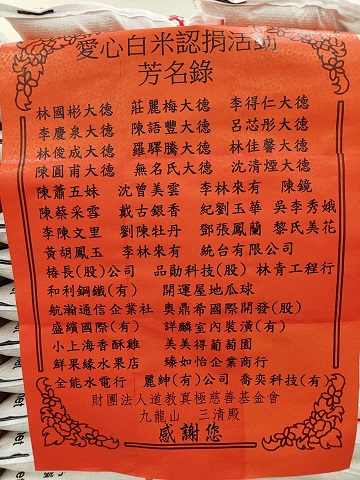 愛心白米認捐活動
芳名錄
林國彬大德 莊麗梅大德 李得仁大德
李慶泉大德 陳語豐大德 呂芯彤大德
林俊成大德 羅驛騰大德 林佳馨大德
陳圓甫大德 無名氏大德 沈清煙大德
陳蕭五妹 沈曾美雲 李林來有 陳鏡
陳蔡采雪 戴古銀香 紀劉玉華 吳李秀娥
李陳文里 劉陳牡丹 鄧張鳳蘭 黎氏美花
黃胡鳳玉 李林來有 統台有限公司
椿長(股)公司 品勛科技(股) 林青工程行
和利鋼鐵(有) 開運屋地瓜球
航瀚通信企業社 奧鼎希國際開發(股)
盛繽國際(有) 詳麟室內裝潢(有)
小上海香酥雞 美美得葡萄園
鮮果緣水果店 臻如怡企業商行
全能水電行 麗紳(有)公司 喬奕科技(有)
財團法人道教真極慈善基金會
九龍山 三清殿
感謝您